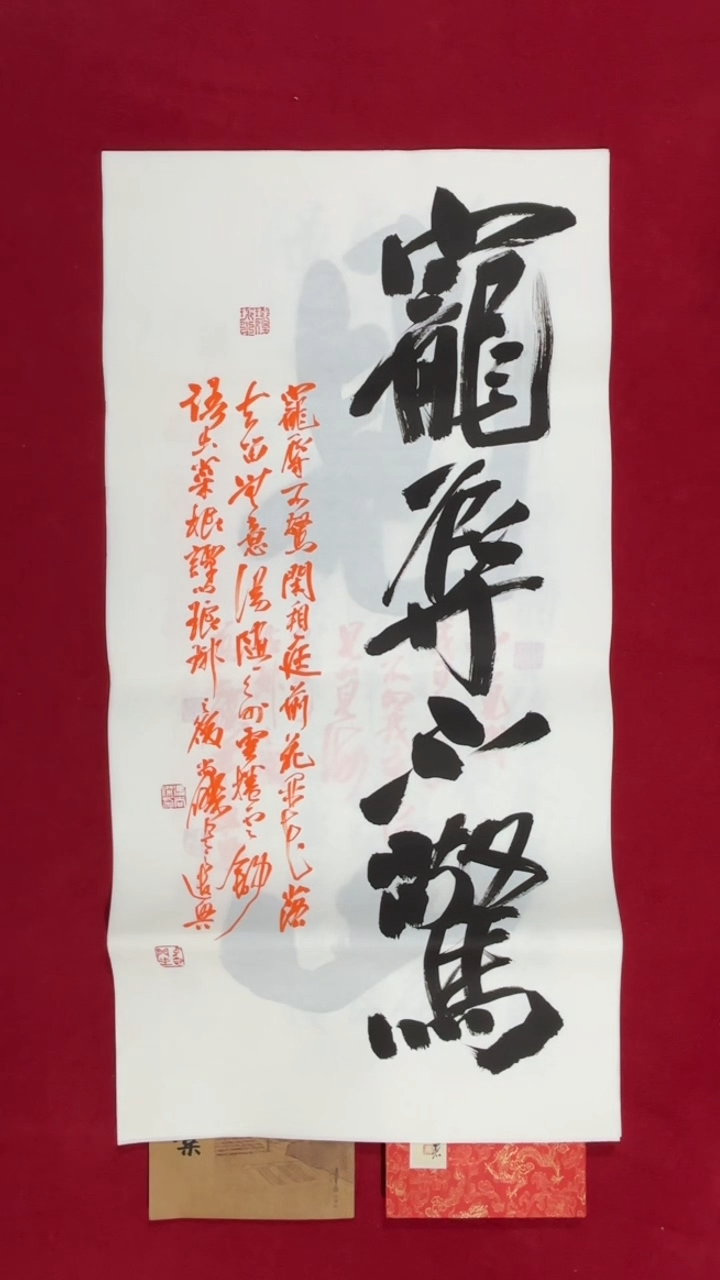 寵辱不驚
寵辱不驚閑看庭前花開花落
去留無意漫隨天外雲捲雲舒
語出菜根譚